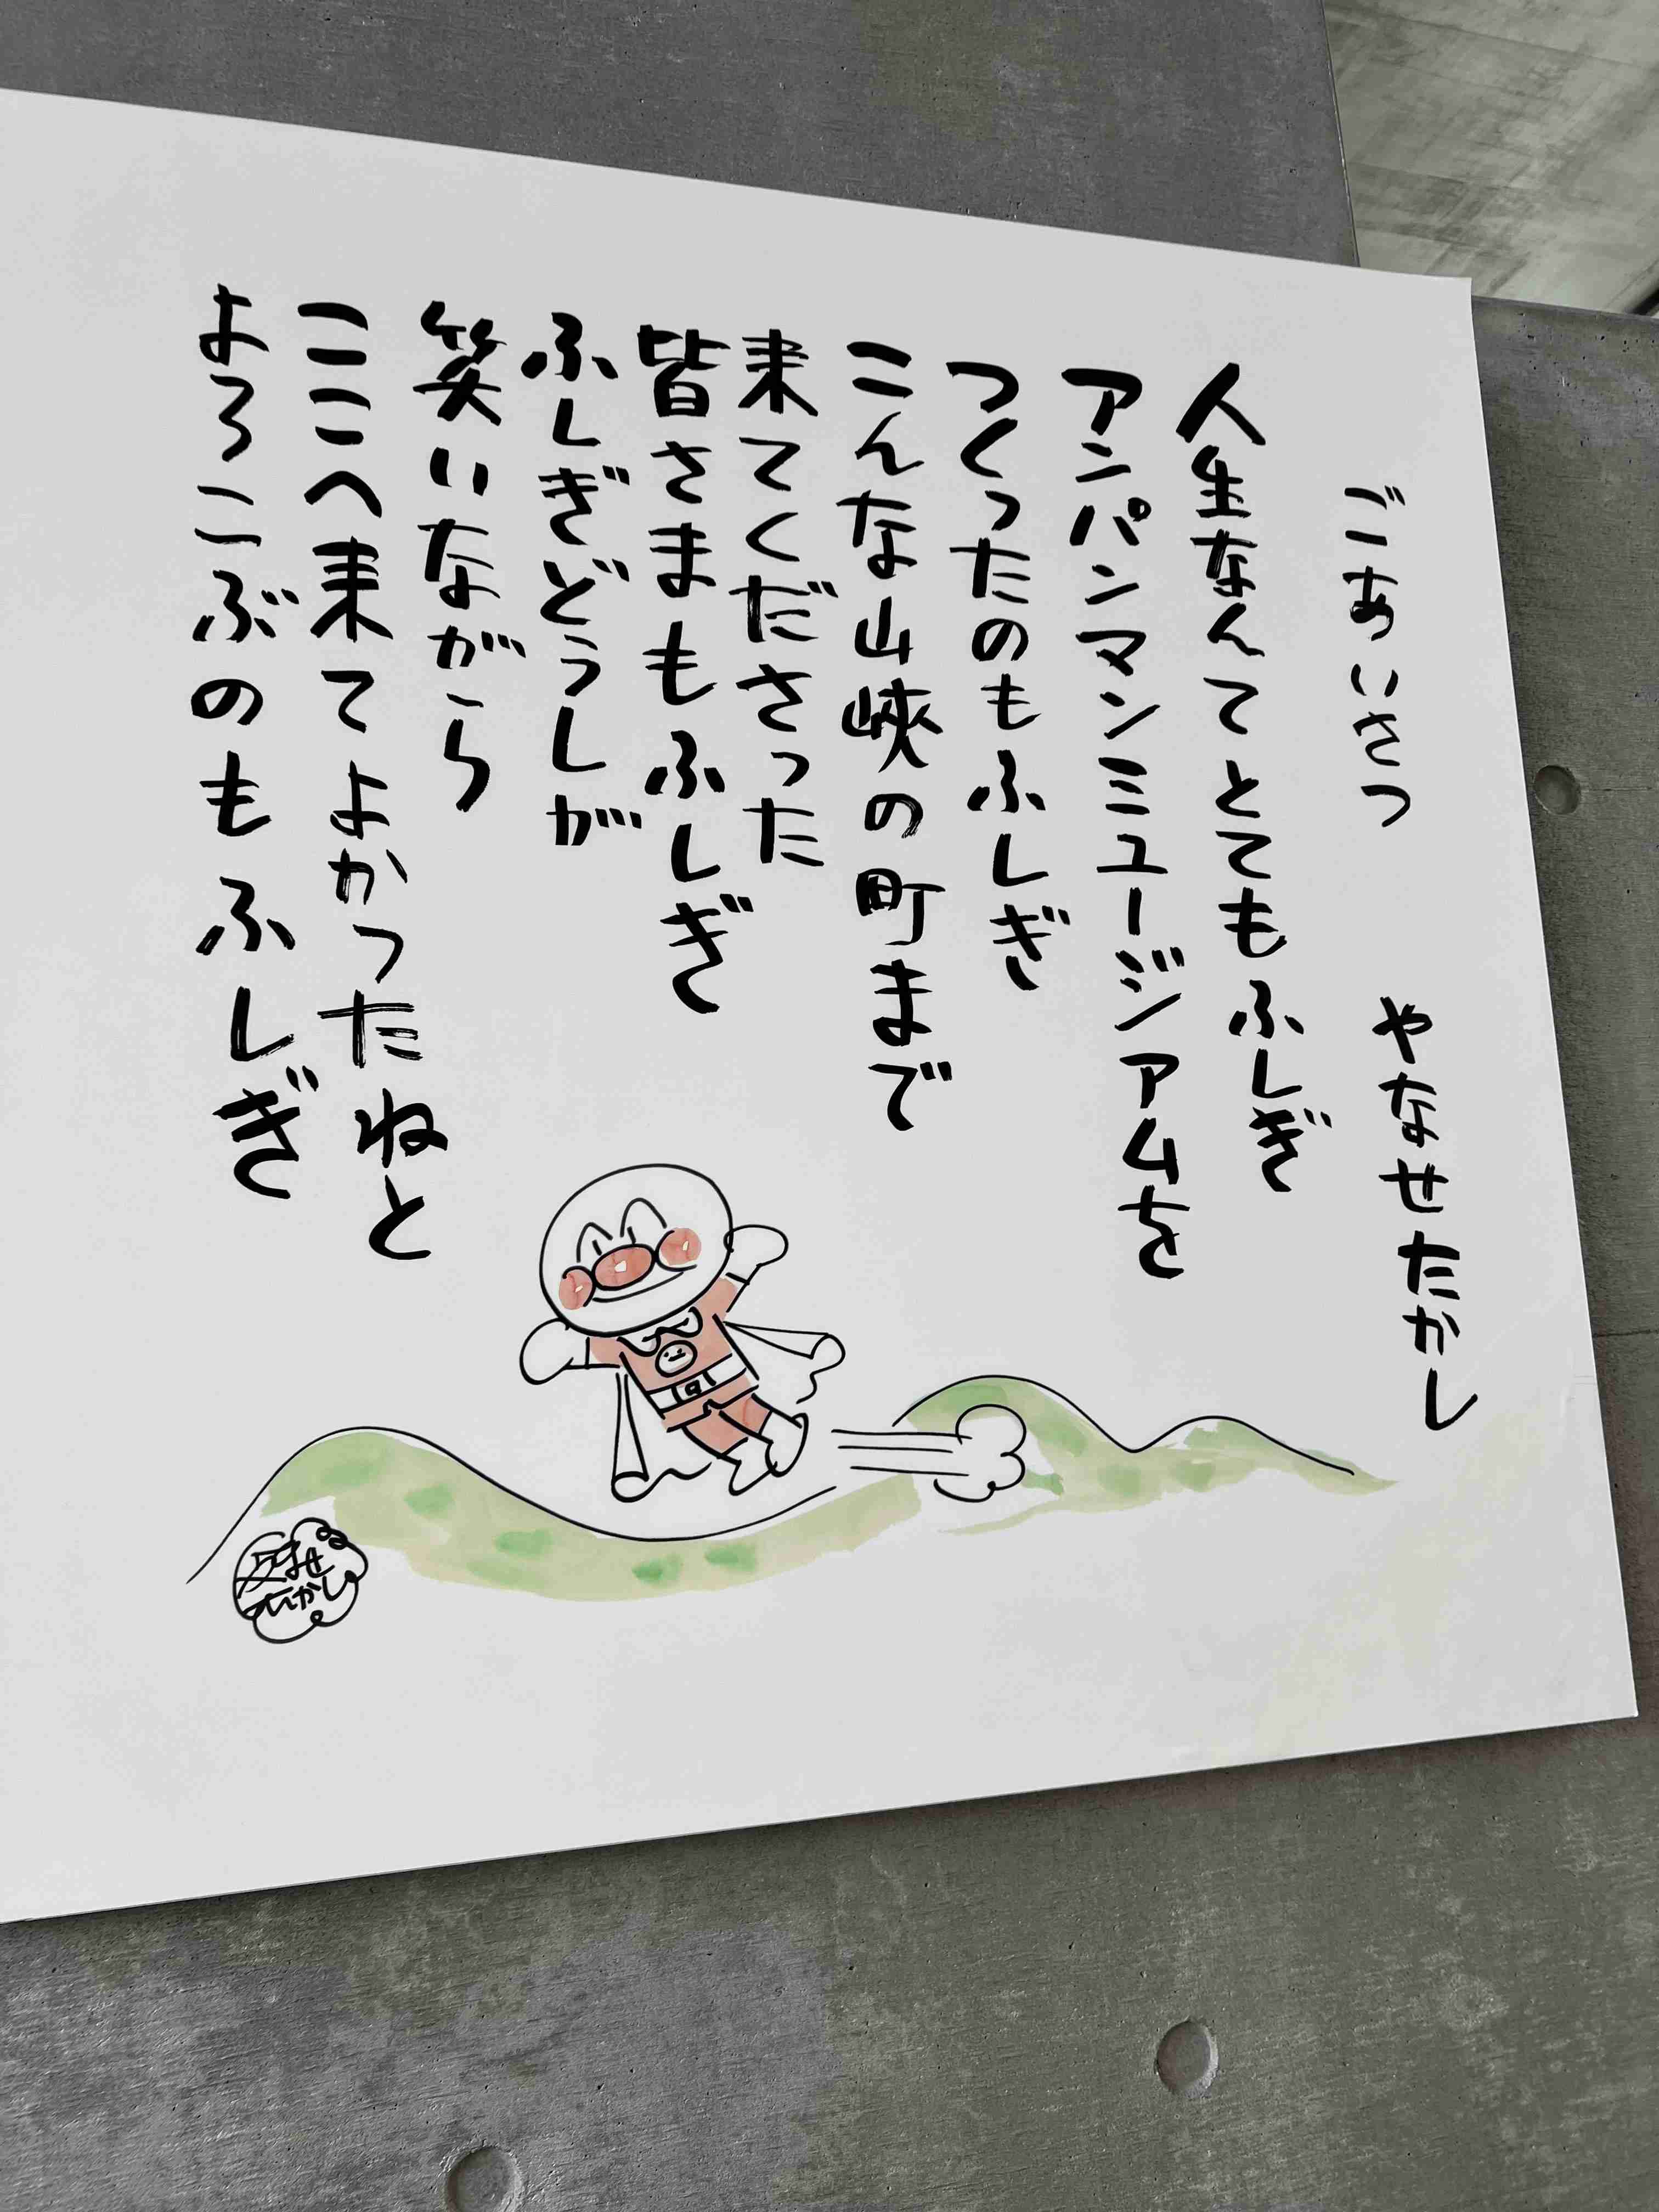 ごあいさつ やなせたかし
人生なんてとてもふしぎ
アンパンマンミュージアムを
つくったのもふしぎ
こんな山峡の町まで
来てくださった
皆さまもふしぎ
ふしぎどうしが
笑いながら
ここへ来てよかったねと
よろこぶのもふしぎ
やなせ
たかし